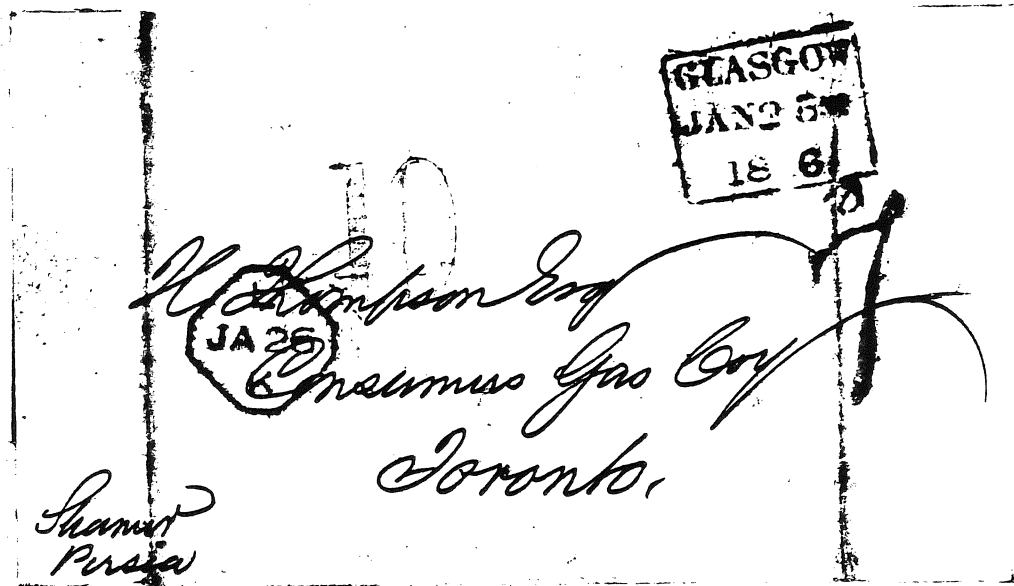 GLASGOW
JAN 25
186
10
H. Thompson Esq
JA 26
K
Consumers Gas Coy
Toronto,
Steamer
Persia